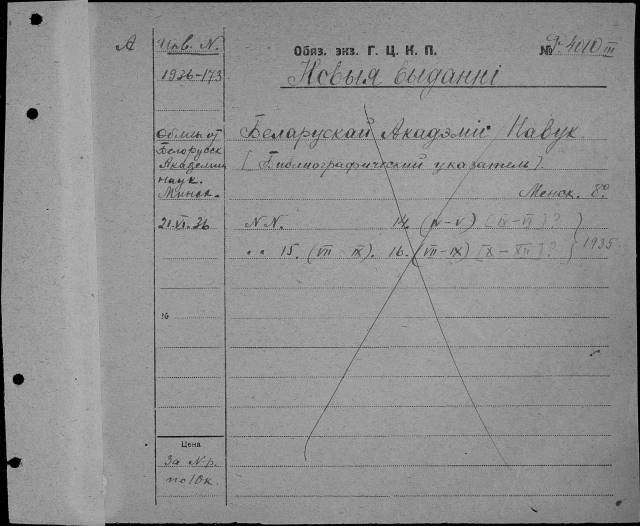 А
Инв. N.
Обяз. экз. Г. Ц. К. П.
№ 4010 III
1926-173
Новыя выданні
Обмен от
Белорусск
Академии
наук.
Минск.
Беларускай Акадэміі Навук.
[Библиографический указатель].
Менск. 8º.
21.XI.36
N N. 14. (IV-V) [IX-XI]?
" " 15. (VII-IX). 16. (VII-IX) [X-XII]? } 1935
26
Цена
За N-р.
по 10 к.